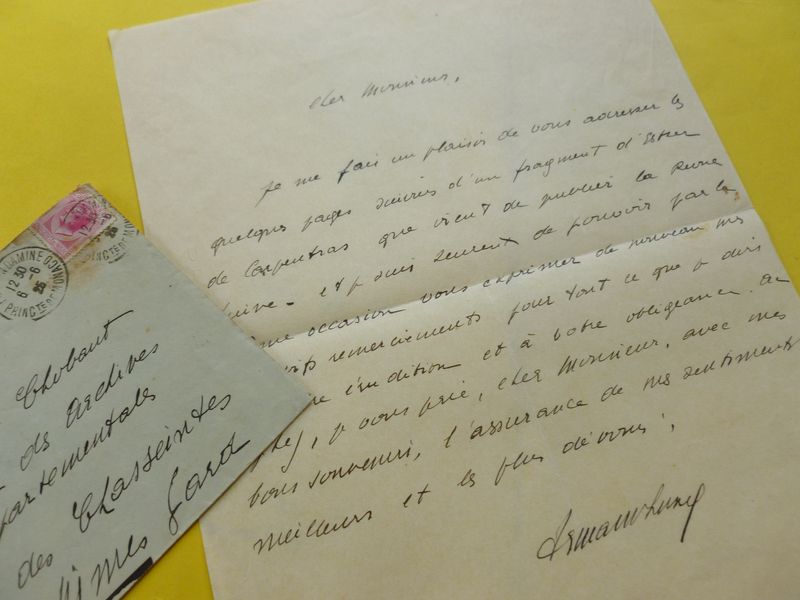 Cher Monsieur,
Je me fais un plaisir de vous adresser les
quelques pages suivies d'un fragment d'Esther
de Carpentras que vient de publier la Revue
juive. et je suis heureux de pouvoir par la
même occasion vous exprimer de nouveau mes
vifs remerciements pour tout ce que je dois
érudition et à votre obligeance. au
je vous prie, cher Monsieur, avec mes
bons souvenirs, l'assurance de mes sentiments
meilleurs et les plus dévoués.
Armand Lunel
CONDAMINE
12 30
6 - 6
25
PRINCTÉ DE MONACO
Chobaut
des Archives
partementales
des Chasseintes
Nîmes Gard